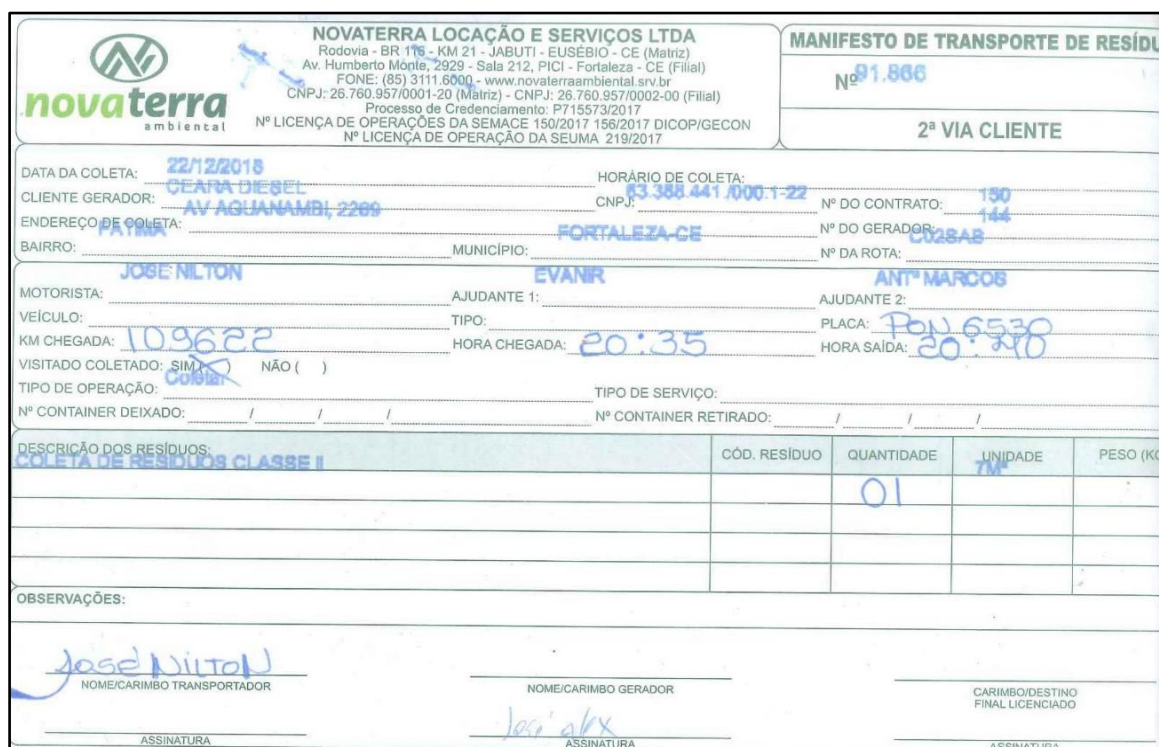 NOVATERRA LOCAÇÃO E SERVIÇOS LTDA
Rodovia - BR 116 - KM 21 - JABUTI - EUSÉBIO - CE (Matriz)
Av. Humberto Monte, 2929 - Sala 212, PICI - Fortaleza - CE (Filial)
FONE: (85) 3111.6000 - www.novaterraambiental.srv.br
CNPJ: 26.760.957/0001-20 (Matriz) - CNPJ: 26.760.957/0002-00 (Filial)
Processo de Credenciamento: P715573/2017
Nº LICENÇA DE OPERAÇÕES DA SEMACE 150/2017 156/2017 DICOP/GECON
Nº LICENÇA DE OPERAÇÃO DA SEUMA 219/2017
novaterra
ambiental
MANIFESTO DE TRANSPORTE DE RESÍDU
Nº 91.866
2ª VIA CLIENTE
DATA DA COLETA: 22/12/2018 HORÁRIO DE COLETA:
CLIENTE GERADOR: CEARA DIESEL CNPJ: 63.388.441/000.1-22 Nº DO CONTRATO: 150
ENDEREÇO DE COLETA: AV AGUANAMBI, 2269 Nº DO GERADOR: 144
BAIRRO: FATIMA MUNICÍPIO: FORTALEZA-CE Nº DA ROTA: C02SAB
MOTORISTA: JOSE NILTON AJUDANTE 1: EVANIR AJUDANTE 2: ANTº MARCOS
VEÍCULO: TIPO: PLACA: PON 6530
KM CHEGADA: 109622 HORA CHEGADA: 20:35 HORA SAÍDA: 20:40
VISITADO COLETADO: SIM (X) NÃO ( )
TIPO DE OPERAÇÃO: Coletar TIPO DE SERVIÇO:
Nº CONTAINER DEIXADO: / / / Nº CONTAINER RETIRADO: / / /
DESCRIÇÃO DOS RESÍDUOS: CÓD. RESÍDUO QUANTIDADE UNIDADE PESO (KG
COLETA DE RESIDUOS CLASSE II 01 7M³
OBSERVAÇÕES:
José NILTON
NOME/CARIMBO TRANSPORTADOR NOME/CARIMBO GERADOR CARIMBO/DESTINO
FINAL LICENCIADO
José alex
ASSINATURA ASSINATURA ASSINATURA